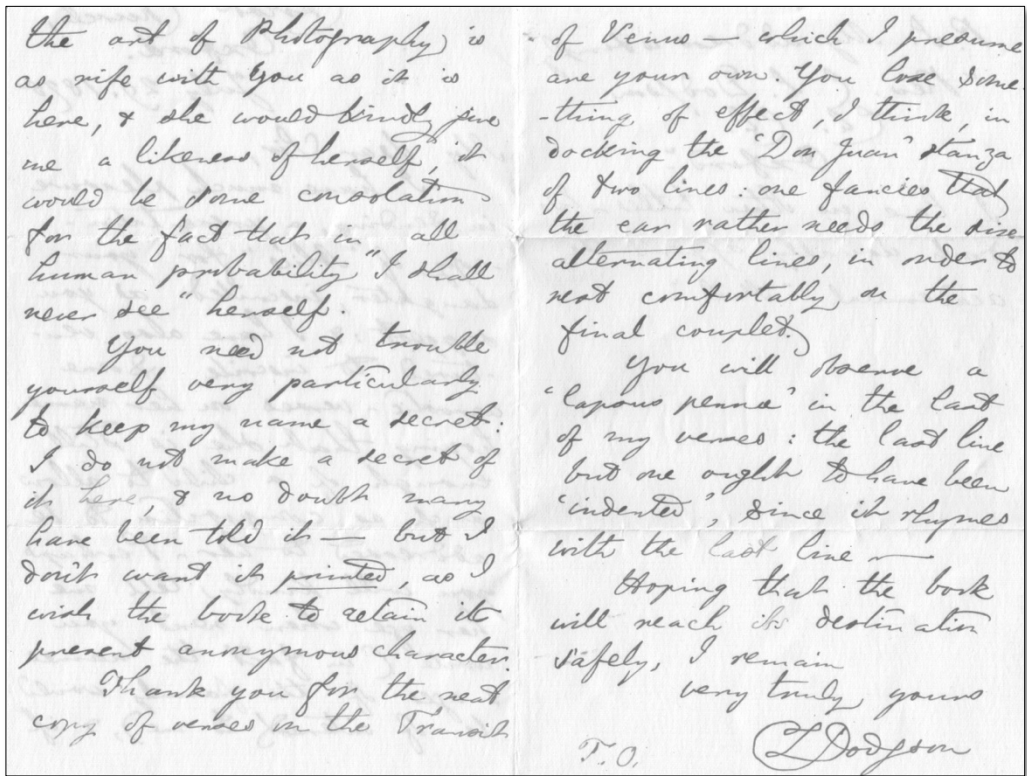 the art of Photography is
as rife with you as it is
here, & she would kindly give
me a likeness of herself, it
would be some consolation
for the fact that in "all
human probability" I shall
never see "herself."
You need not trouble
yourself very particularly
to keep my name a secret:
I do not make a secret of
it here, & no doubt many
have been told it — but I
don't want it printed, as I
wish the book to retain its
present anonymous character.
Thank you for the neat
copy of verses on the Transit
of Venus — which I presume
are your own. You lose some-
-thing of effect, I think, in
docking the "Don Juan" stanza
of two lines: one fancies that
the ear rather needs the six
alternating lines, in order to
rest comfortably on the
final couplet.
You will observe a
"lapsus pennæ" in the last
of my verses: the last line
but one ought to have been
'indented', since it rhymes
with the last line —
Hoping that the book
will reach its destination
safely, I remain
very truly yours
C L Dodgson
T.O.